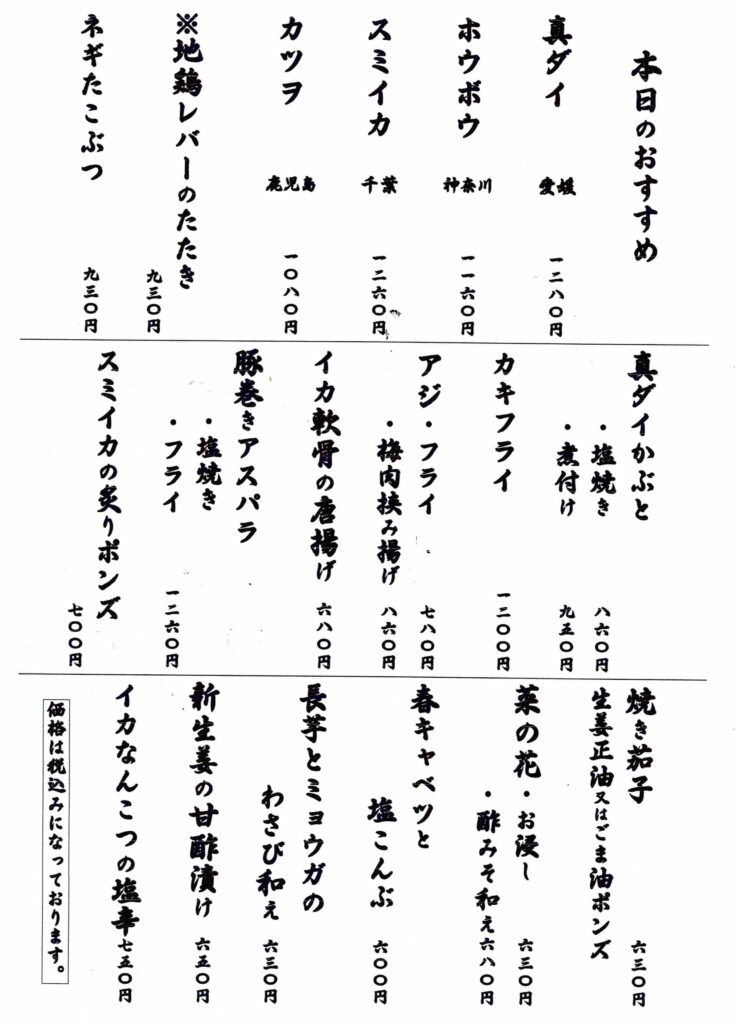 本日のおすすめ
真ダイ 愛媛 一二八〇円
ホウボウ 神奈川 一一六〇円
スミイカ 千葉 一二六〇円
カツヲ 鹿児島 一〇八〇円
※地鶏レバーのたたき 九三〇円
ネギたこぶつ 九三〇円
真ダイかぶと
・塩焼き 八六〇円
・煮付け 九五〇円
カキフライ 一二〇〇円
アジ・フライ 七八〇円
・梅肉挟み揚げ 八六〇円
イカ軟骨の唐揚げ 六八〇円
豚巻きアスパラ
・塩焼き
・フライ 一二六〇円
スミイカの炙りポンズ 七〇〇円
焼き茄子 六三〇円
生姜正油又はごま油ポンズ
菜の花・お浸し 六三〇円
・酢みそ和え 六八〇円
春キャベツと
塩こんぶ 六〇〇円
長芋とミョウガの
わさび和え 六三〇円
新生姜の甘酢漬け 六五〇円
イカなんこつの塩辛 七五〇円
価格は税込みになっております。